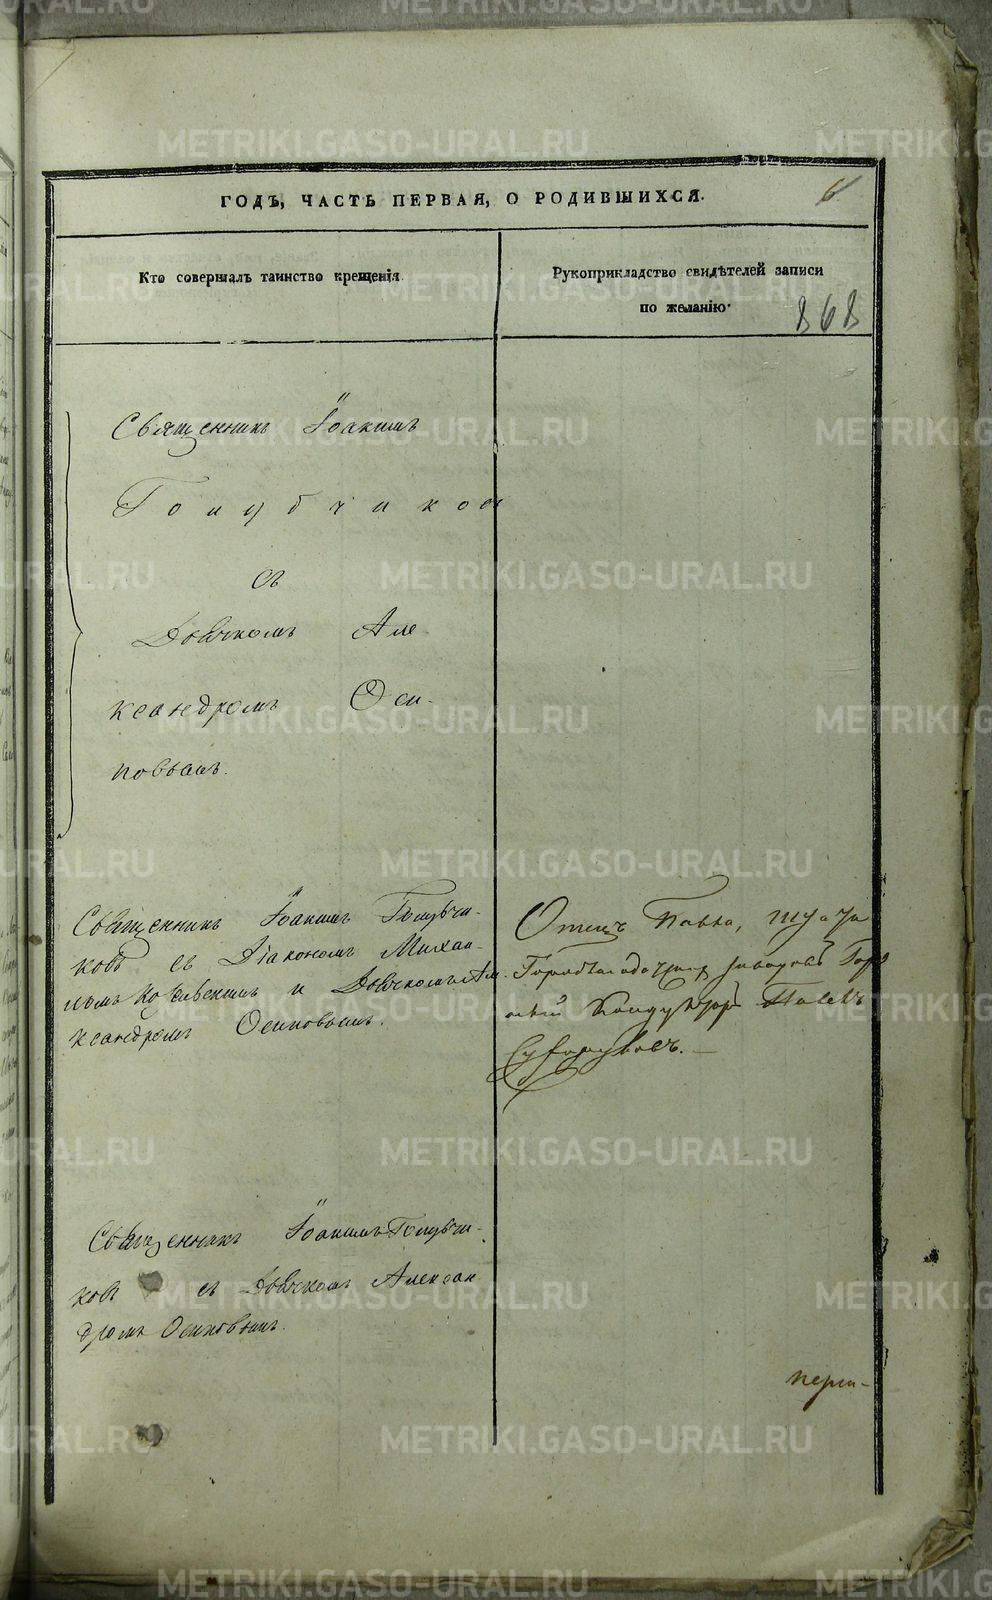 ГОДЪ, ЧАСТЬ ПЕРВАЯ, О РОДИВШИХСЯ.
6
Кто совершалъ таинство крещенія.
Рукоприкладство свидѣтелей записи
по желанію.
868
Священникъ Іоакимъ
Голубчиковъ
съ
Дьячкомъ Але
ксандромъ Оси-
повымъ.
Священникъ Іоакимъ Голубчи-
ковъ съ Діакономъ Михаи-
ломъ и Дьячкомъ Але
ксандромъ Осиповымъ.
Отецъ Павла,
заводовъ Гор
ный Павелъ
Священникъ Іоакимъ Голубчи-
ковъ съ Дьячкомъ Алексан
дромъ Осиповымъ.
METRIKI.GASO-URAL.RU